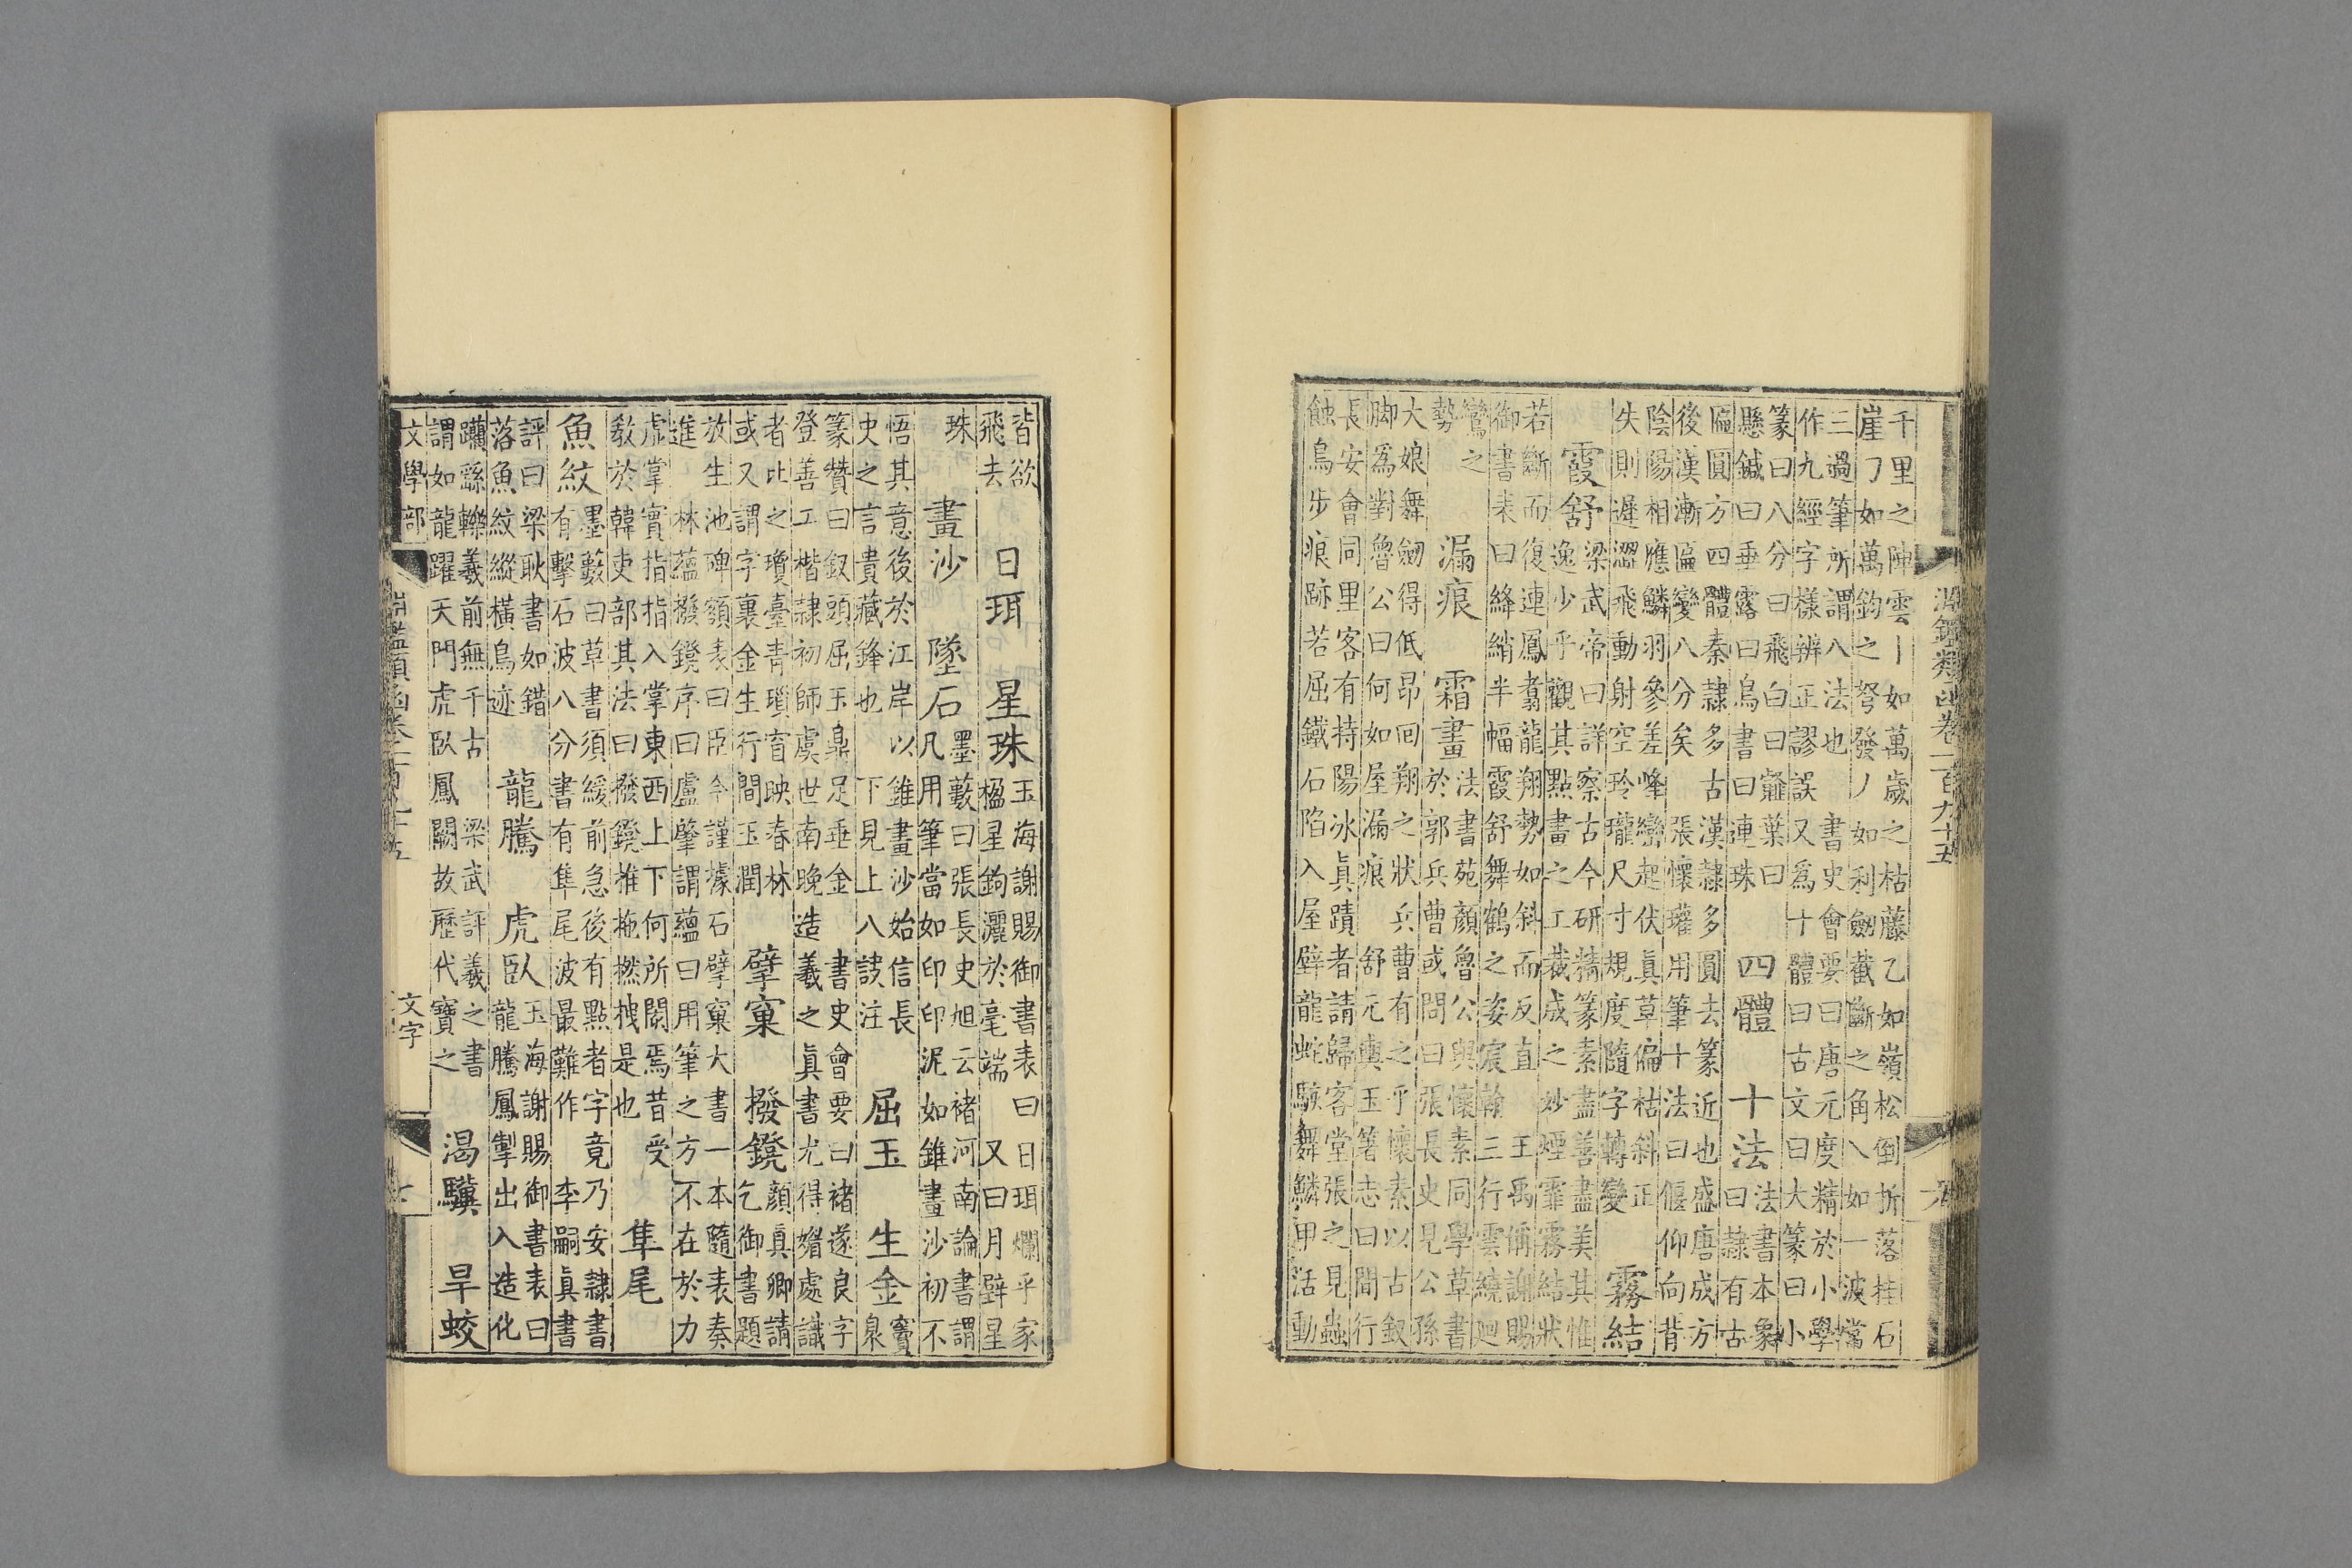 淵鑑類函卷一百九十五
千里之陣雲丨如萬歲之枯藤乙如嶺松倒折落桂石
崖𠃌如萬鈞之弩發丿如利劒截斷之角乀如一波當
三過筆所謂八法也　書史會要曰唐元度精於小學
作九經字樣辨正謬誤又爲十體曰古文曰大篆曰小
篆曰八分曰飛白曰薤葉曰
懸鍼曰垂露曰鳥書曰連珠
四體　十法
法書本象
曰隷有古
匾圓方四體秦隷多古漢隷多圓去篆近也盛唐成方
後漢漸匾變八分矣　張懷瓘用筆十法曰偃仰向背
陰陽相應鱗羽參差峰巒起伏眞草偏枯斜正
失則遲澀飛動射空玲瓏尺寸規度隨字轉變
霧結
霞舒
梁武帝曰詳察古今研精篆素盡善盡美其惟
逸少乎觀其點畫之工裁成之妙煙霏霧結狀
若斷而復連鳳翥龍翔勢如斜而反直　王禹偁謝賜
御書表曰絳綃半幅霞舒舞鶴之姿宸翰三行雲繞廻
鸞之
勢
漏痕　霜畫
法書苑顏魯公與懷素同學草書
於郭兵曹或問曰張長史見公孫
大娘舞劒得低昂回翔之狀兵曹有之乎懷素以古釵
脚爲對魯公曰何如屋漏痕　舒元輿玉箸志曰間行
長安會同里客有持陽冰眞蹟者請歸客堂張之見蟲
蝕鳥步痕跡若屈鐵石陷入屋壁龍蛇駭舞鱗甲活動
皆欲
飛去
日珥　星珠
玉海謝賜御書表曰日珥爛乎家
楹星鉤灑於毫端　又曰月璧星
珠
畫沙　墜石
墨藪曰張長史旭云褚河南論書謂
凡用筆當如印印泥如錐畫沙初不
悟其意後於江岸以錐畫沙始信長
史之言貴藏鋒也　下見上八訣注
屈玉　生金
竇
臮
篆贊曰釵頭屈玉鼎足垂金　書史會要曰褚遂良字
登善工楷隷初師虞世南晚造羲之眞書尤得媚處識
者比之瓊臺青瑣窅映春林
或又謂字裏金生行間玉潤
擘窠　撥鐙
顏眞卿請
乞御書題
放生池碑額表曰臣今謹據石擘窠大書一本隨表奏
進　林藴撥鐙序曰盧肇謂藴曰用筆之方不在於力
虛掌實指指入掌東西上下何所閡焉昔受
敎於韓吏部其法曰撥鐙推拖撚拽是也
隼尾
魚紋
墨藪曰草書須緩前急後有點者字竟乃安隷書
有擊石波八分書有隼尾波最難作　李嗣眞書
評曰梁耿書如錯
落魚紋縱橫鳥迹
龍騰　虎臥
玉海謝賜御書表曰
龍騰鳳掣出入造化
躪繇轢羲前無千古　梁武評羲之書
謂如龍躍天門虎臥鳳闕故歷代寶之
渴驥　旱蛟
文學部
淵鑑類函卷一百九十五
文字
七